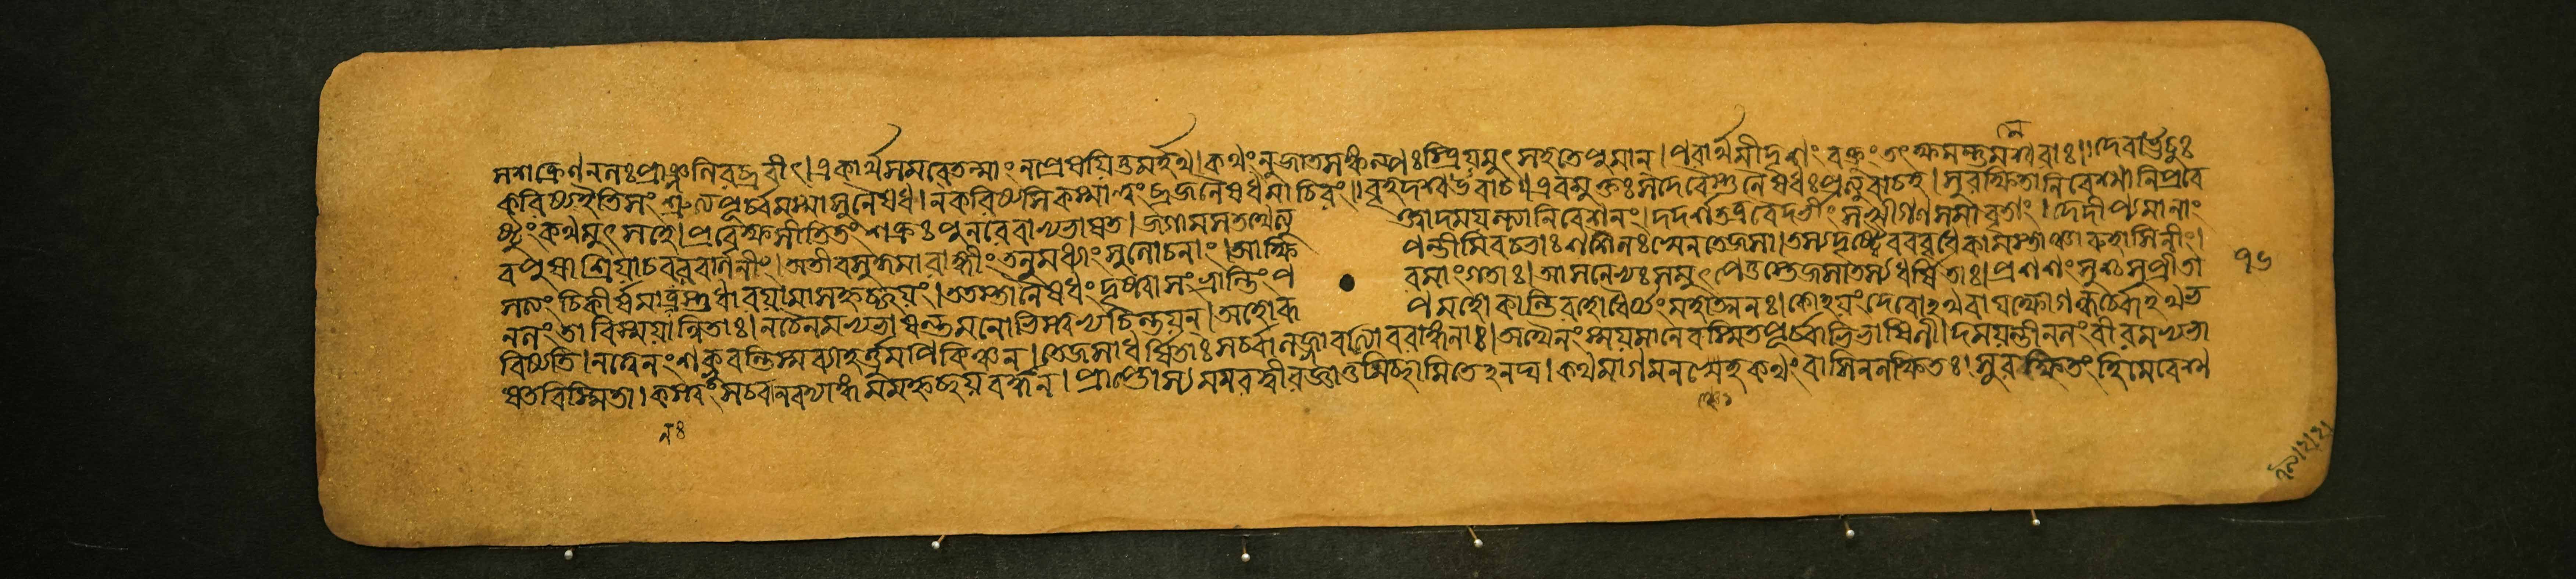 সশক্রেণ নলঃ প্রাঞ্জলিরব্রবীৎ।একার্থসমবেতন্মাং নপ্রেষয়িতুমর্হথ।কথং নু জাতসঙ্কল্পঃ স্ত্রিয়মুৎসহতে পুমান্।পরার্থমীদৃশং বক্তুং তৎক্ষমন্তু মহেশ্বরাঃ।।দেবা ঊচুঃ
করিষ্যইতি সংশ্রুত্য পূর্ব্বমস্মাসু নৈষধ।ন করিষ্যসি কস্মাত্ত্বং ব্রজ নৈষধ মাচিরং।।বৃহদশ্ব উবাচ।।এবমুক্তঃ স দেবৈস্তু নৈষধঃ প্রত্যুবাচহ।সুরক্ষিতানি বেশ্মানি প্রবে
ষ্টুং কথমুৎসহে।প্রবেক্ষ্যসীতি তং শক্রঃ পুনরেবাভ্যভাষত।জগাম স তথেত্যু ক্ত্বা দময়ন্ত্যা নিবেশনং।দদর্শ তত্র বৈদর্ভীং সখীগণসমাবৃতাং।দেদীপ্যমানাং
বপুষা শ্রিয়াচ বরবর্ণিনীং।অতীব সুকুমারাঙ্গীং তনুমধ্যাং সুলোচনাং।আক্ষি পন্তীমিব চ ভাঃ শশিনঃ স্বেন তেজসা।তস্য দৃষ্ট্বৈব ববৃধে কামস্তাঞ্চারুহাসিনীং।
সত্যং চিকীর্ষমাণস্তু ধারয়ামাস হৃচ্ছয়ং।ততস্তা নৈষধং দৃষ্ট্বা সংভ্রান্তিং প রমাংগতাঃ।আসনেভ্যঃ সমুৎপেতুস্তেজসা তস্য ধর্ষিতাঃ।প্রশশংসুশ্চ সুপ্রীতা ১৬
নলং তা বিস্ময়ান্বিতাঃ।নচৈনমভ্যভাষন্ত মনোভিস্ত্বভ্যচিন্তয়ন্।অহোরূ পমহোকান্তিরহোধৈর্য্যং মহাত্মনঃ।কোঽয়ং দেবোঽথবা যক্ষো গন্ধর্ব্বোঽথ ভ
বিষ্যতি।নত্বেনং শক্নুবন্তিস্ম ব্যাহর্ত্তুমপি কিঞ্চন।তেজসা ধর্ষিতাঃ সর্ব্বা লজ্জাবত্যো বরাঙ্গনাঃ।অথৈনং স্ময়মানেব স্মিতপূর্ব্বাভিভাষিণী।দময়ন্তী নলং বীরমভ্যভা
ষত বিস্মিতা।কস্ত্বং সর্ব্বানবদ্যাঙ্গ মম হৃচ্ছয়বর্দ্ধন।প্রাপ্তোস্যমরবদ্বীর জ্ঞাতুমিচ্ছামি তেঽনঘ।কথমাগমনঞ্চেহ কথং বাসি ন লক্ষিতঃ।সুরক্ষিতং হি মে বেশ্ম
নঃ